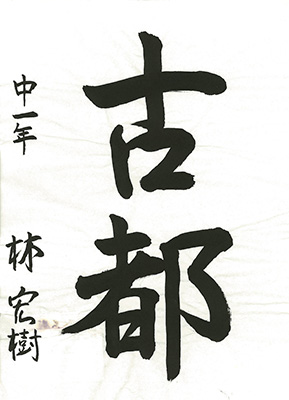 古都
中一年 林宏樹